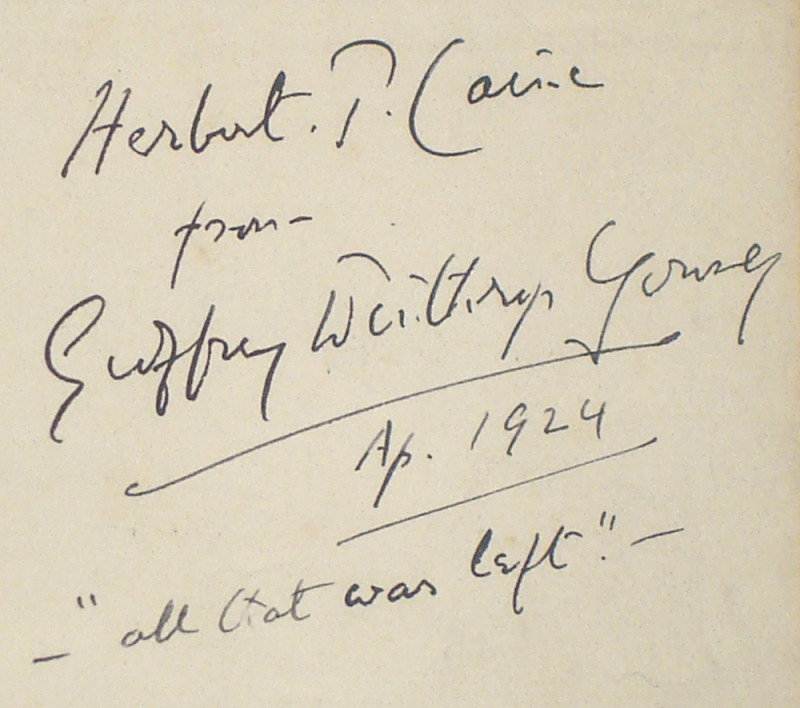 Herbert. P. Caine
from
Geoffrey Winthrop Young
Ap. 1924
— "all that was left". —